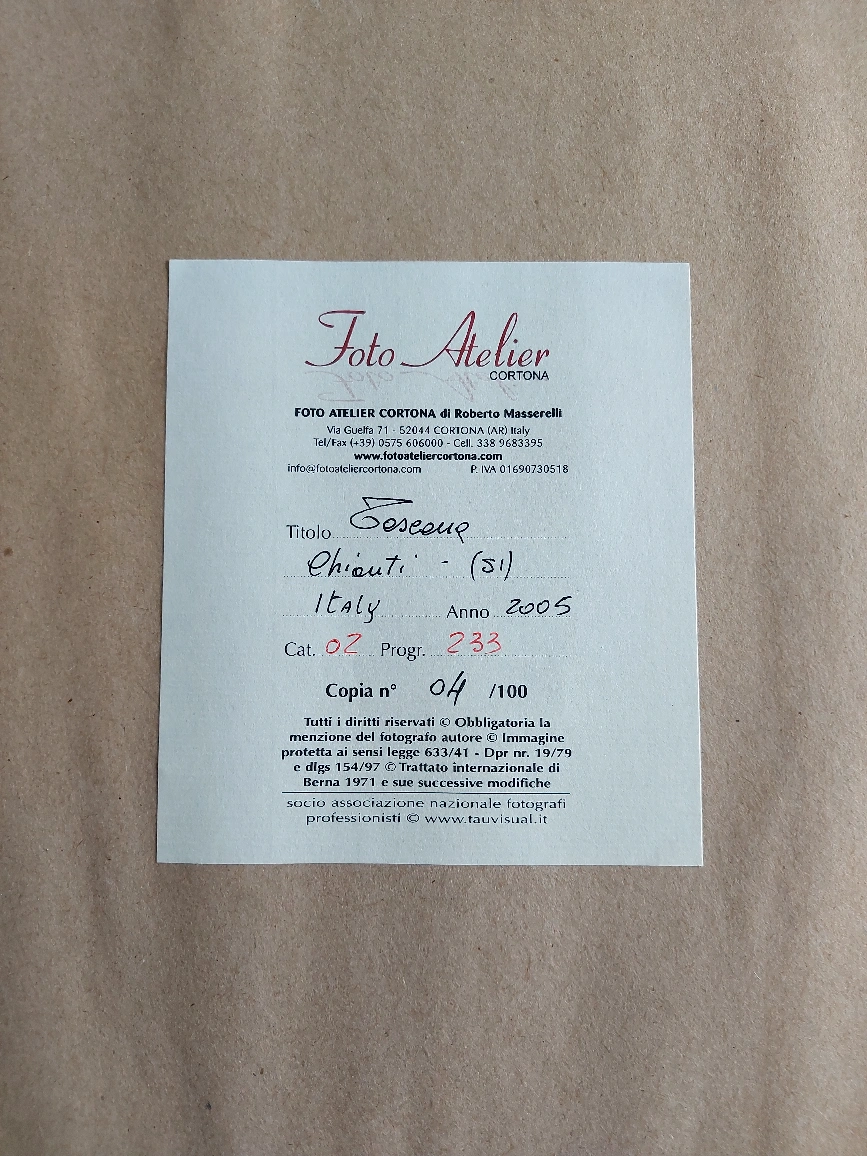 Foto Atelier
CORTONA
FOTO ATELIER CORTONA di Roberto Masserelli
Via Guelfa 71 - 52044 CORTONA (AR) Italy
Tel/Fax (+39) 0575 606000 - Cell. 338 9683395
www.fotoateliercortona.com
info@fotoateliercortona.com P. IVA 01690730518
Titolo Toscana
Chianti - (SI)
Italy Anno 2005
Cat. 02 Progr. 233
Copia n° 04 /100
Tutti i diritti riservati © Obbligatoria la
menzione del fotografo autore © Immagine
protetta ai sensi legge 633/41 - Dpr nr. 19/79
e dlgs 154/97 © Trattato internazionale di
Berna 1971 e sue successive modifiche
socio associazione nazionale fotografi
professionisti © www.tauvisual.it